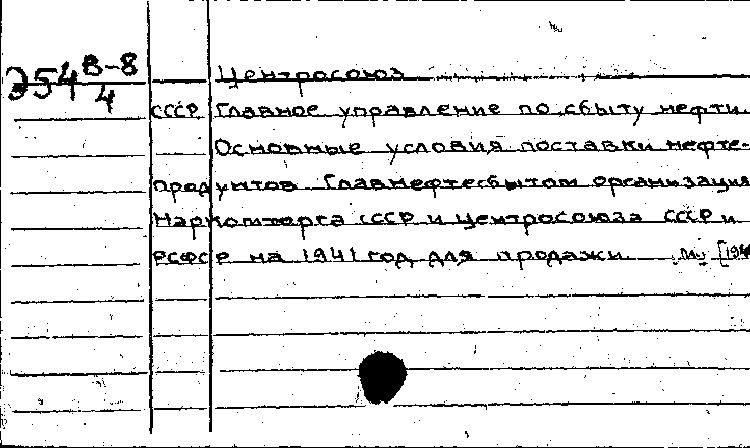 Э54 В-8
4
Центросоюз
СССР Главное управление по сбыту нефти.
Основные условия поставки нефте-
продуктов Главнефтесбытом организация
Наркомторга СССР и Центросоюза СССР и
РСФСР на 1941 год для продажи.